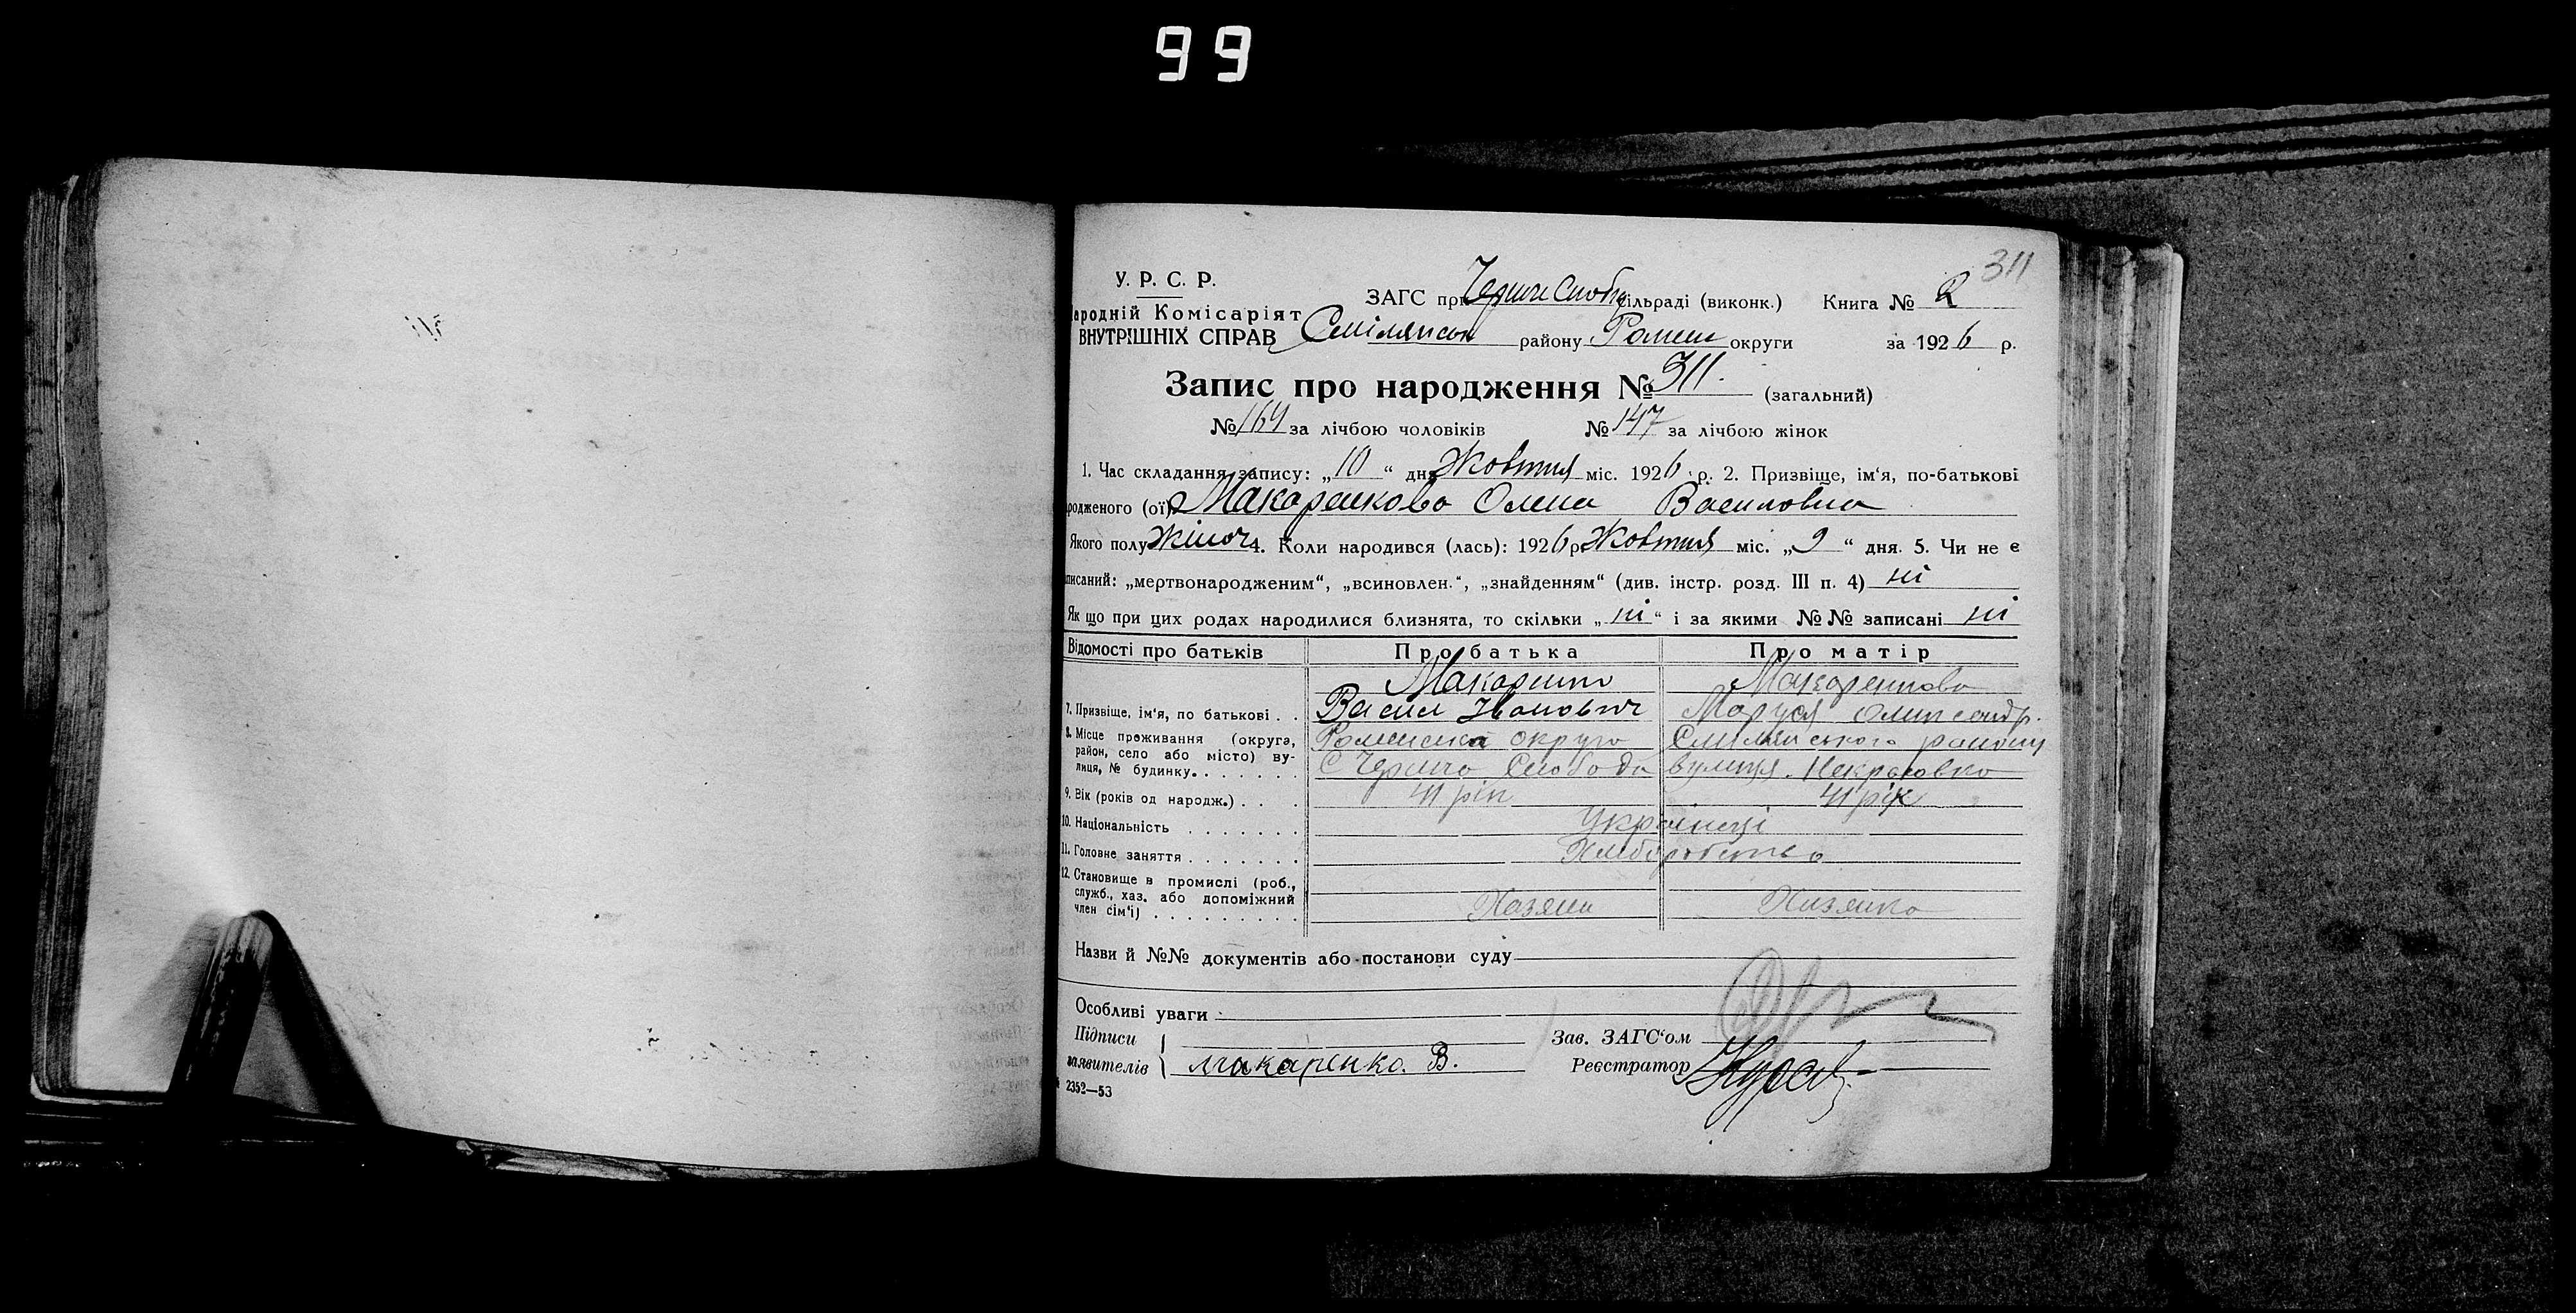 99
311
У. Р. С. Р.
ародній Комісаріят
ВНУТРІШНІХ СПРАВ
ЗАГС при Черничо Слобід сільраді (виконк.) Книга № 2
Смілянськ району Ромен округи за 1926 р.
Запис про народження № 311. (загальний)
№ 164 за лічбою чоловіків № 147 за лічбою жінок
1. Час складання запису: „10“ дня Жовтня міс. 1926 р. 2. Призвіще, ім'я, по-батькові
родженого (ої) Макаренкова Олена Василовна
Якого полу Жіноч 4. Коли народився (лась): 1926 р. Жовтня міс. „9“ дня. 5. Чи не є
писаний: „мертвонародженим“, „всиновлен.“, „знайденням“ (див. інстр. розд. III п. 4) ні
Як що при цих родах народилися близнята, то скільки „ні“ і за якими №№ записані ні
Відомості про батьків Про батька Про матір
Макаренко Макаренкова
7. Призвіще, ім'я, по батькові . . Васил Іванович Маруся Олександр.
8. Місце проживання (округа, район, село або місто) вулиця, № будинку. . . . . . . Роменська округа Смілянського району
С Чернича Слобода вулиця Некрасовка
9. Вік (років од народж.) . . . 41 рік 41 рік
10. Національність . . . . . . . Українці
11. Головне заняття . . . . . . . Хліборобство
12. Становище в промислі (роб., служб., хаз. або допоміжний член сім'ї) . . . . . . . . . Хазяин Хазяйка
Назви й №№ документів або постанови суду
Особливі уваги
Підписи
заявителів макаренко. В.
Зав. ЗАГС'ом
Реєстратор
2352—53